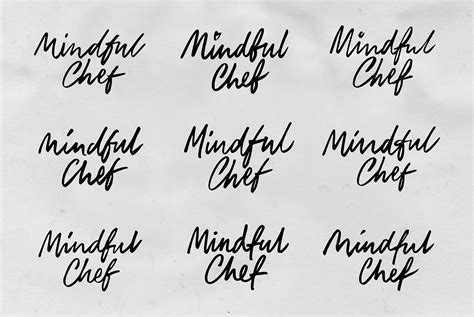 Mindful Mindful Mindful
Chef Chef Chef
Mindful Mindful Mindful
Chef Chef Chef
Mindful Mindful Mindful
Chef Chef Chef